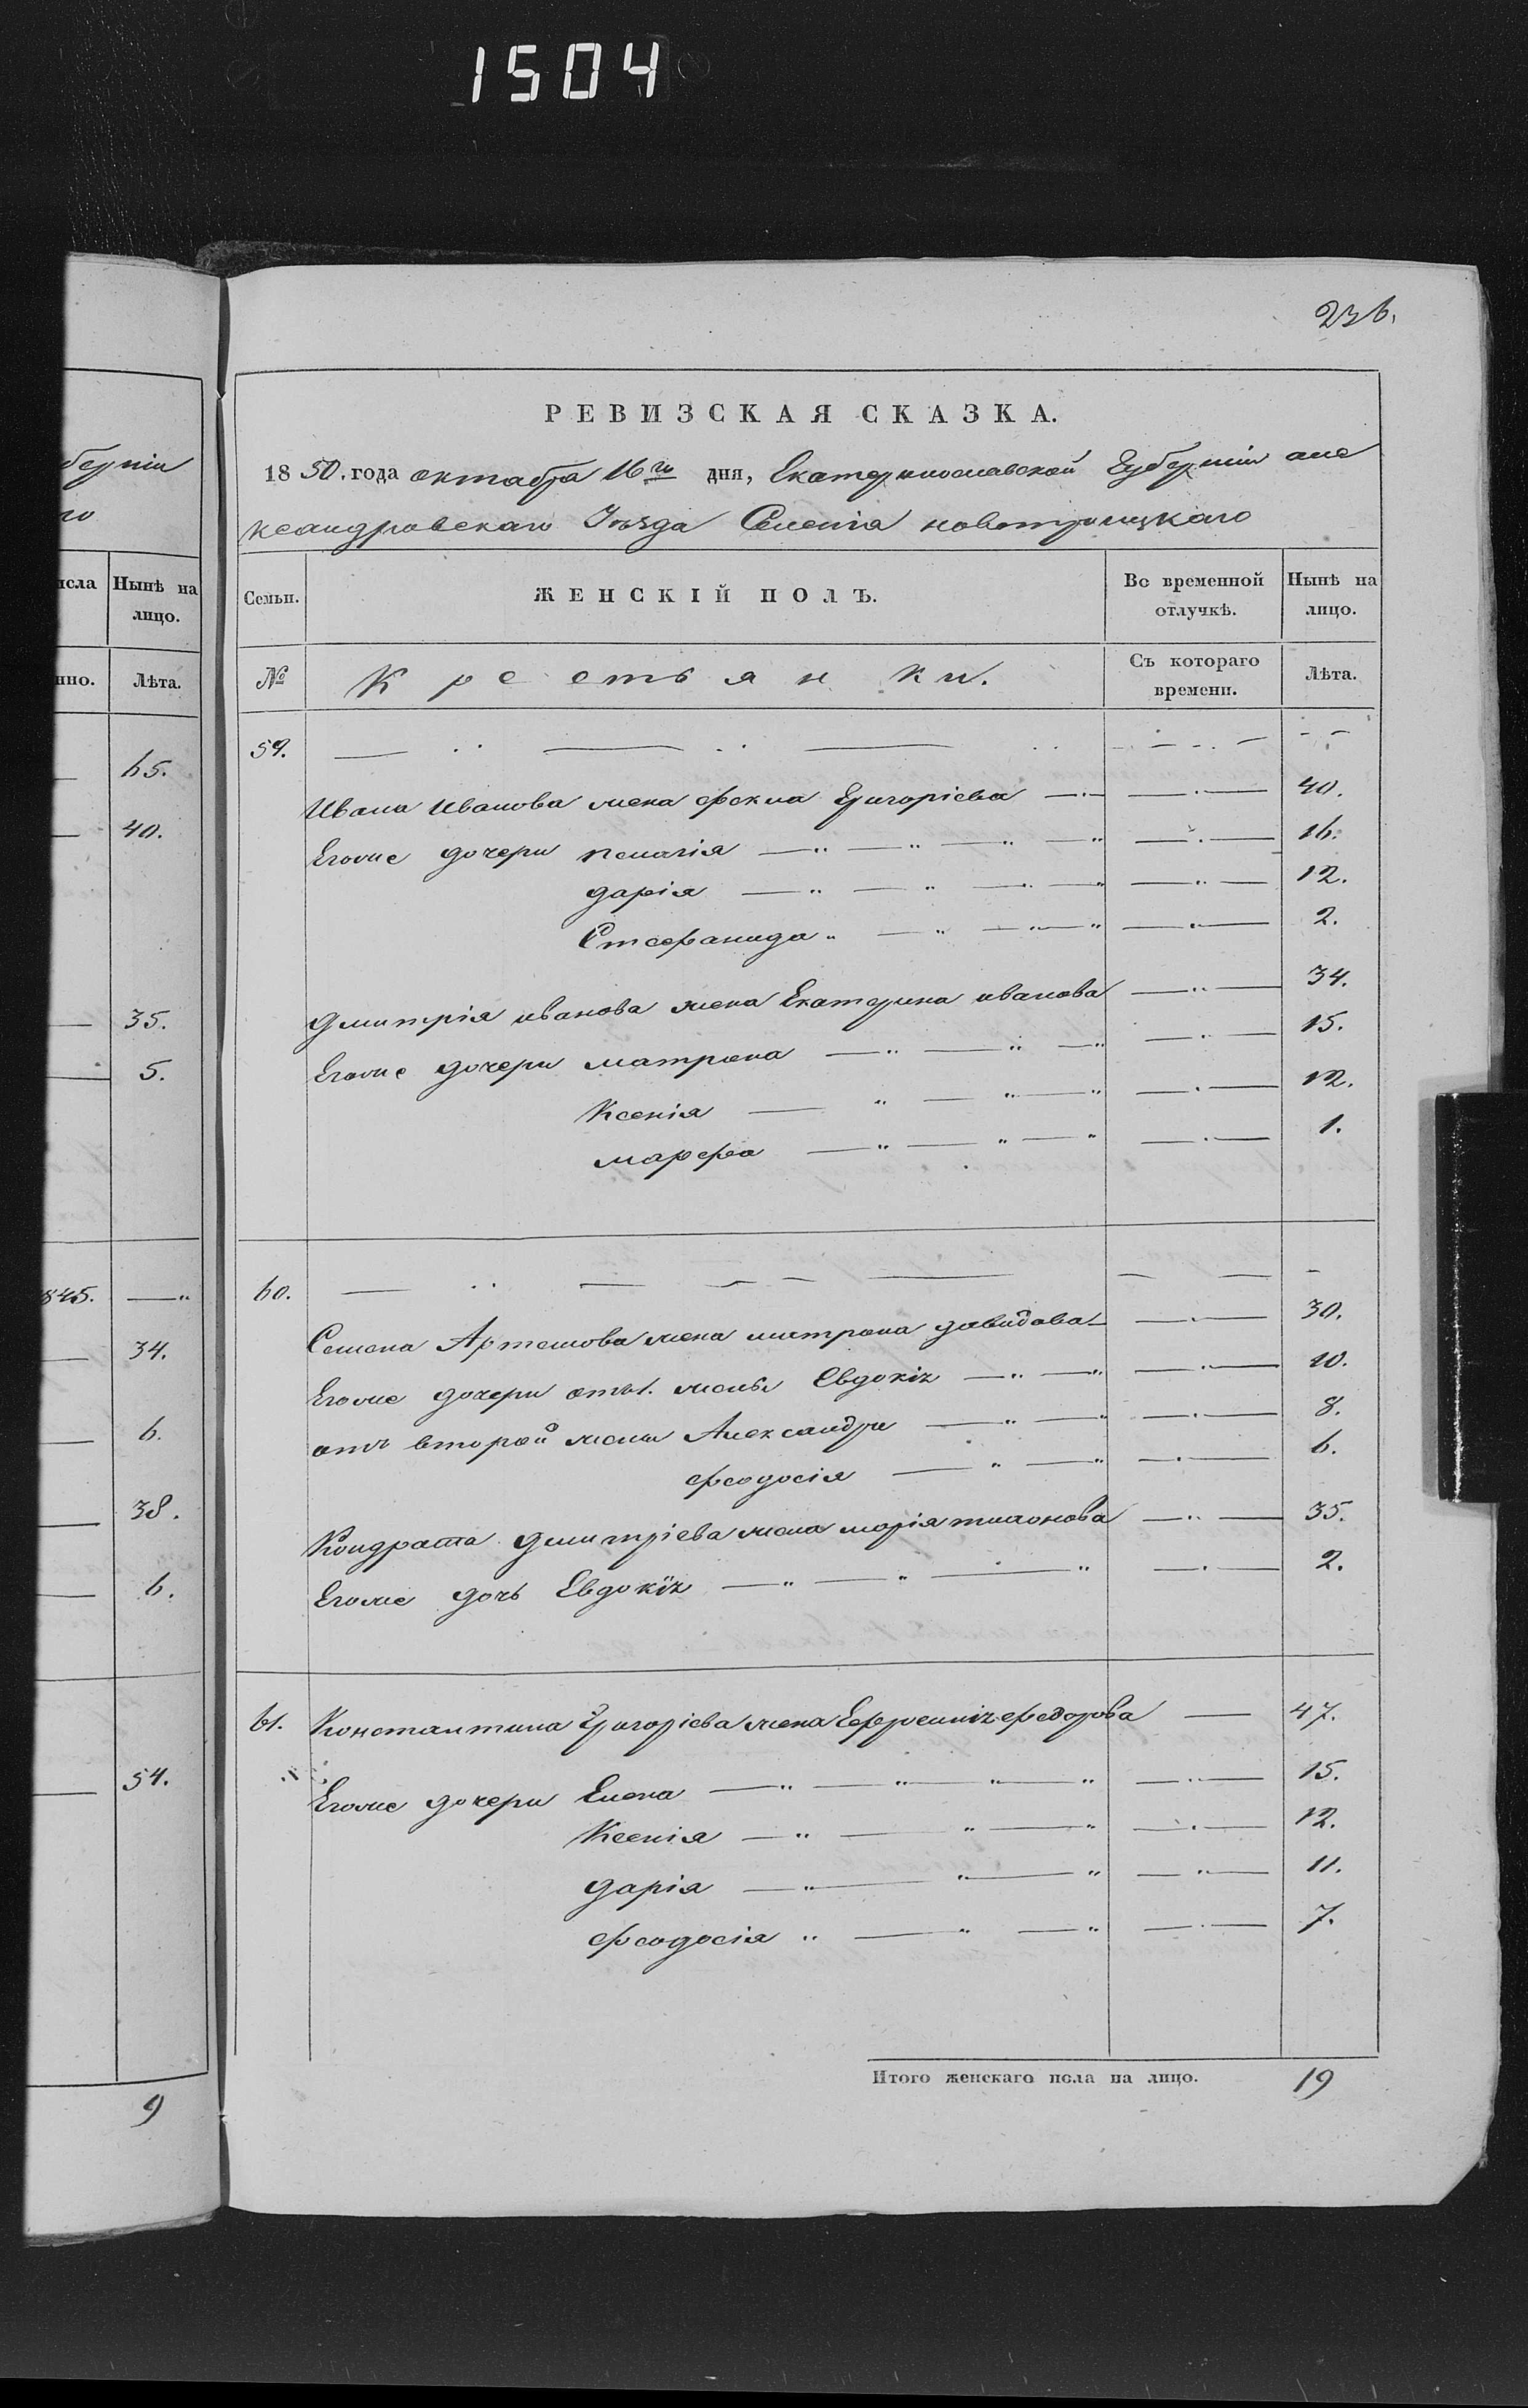 1504
236.
берніи
го
исла Нынѣ на лицо.
нно. Лѣта.
65.
40.
35.
5.
845.
34.
6.
38.
6.
54.
9
РЕВИЗСКАЯ СКАЗКА.
1850. года октабра 16го дня, Екатеринославской Губерніи але
ксандровскаго Уѣзда Селенія новотроицкаго
Семьи. ЖЕНСКІЙ ПОЛЪ. Во временной отлучкѣ. Нынѣ на лицо.
№ Крестьянки. Съ котораго времени. Лѣта.
59.
Ивана Иванова жена фекла Григоріева 40.
Егоже дочери пелагія 16.
дарія 12.
Стефанида 2.
Дмитрія иванова жена Екатерина иванова 34.
Егоже дочери матрона 15.
Ксенія 12.
марфа 1.
60.
Семена Артемова жена матрона давидова 30.
Егоже дочери отъ 1. жены Евдокія 10.
отъ второй жены Александра 8.
феодосія 6.
Кондрата Дмитріева жена марія тимонова 35.
Егоже дочь Евдокія 2.
61. Константина Григоріева жена Ефросинія федорова 47.
Егоже дочери Елена 15.
Ксенія 12.
дарія 11.
феодосія 7.
Итого женскаго пола на лицо. 19